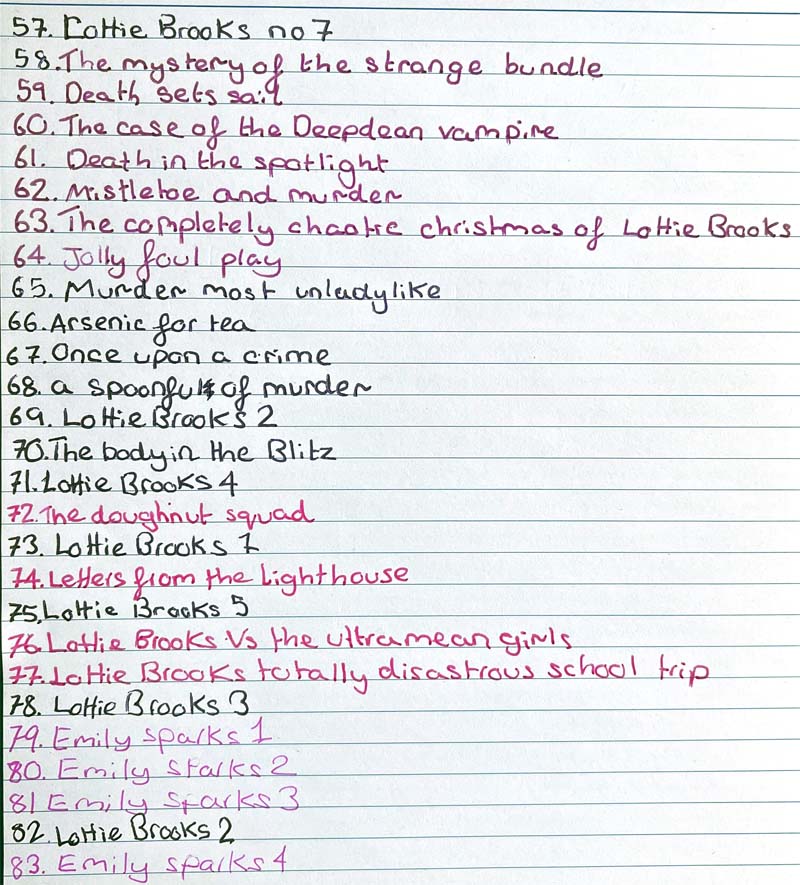 57. Lottie Brooks no 7
58. The mystery of the strange bundle
59. Death sets sail
60. The case of the Deepdean vampire
61. Death in the spotlight
62. Mistletoe and murder
63. The completely chaotic christmas of Lottie Brooks
64. Jolly foul play
65. Murder most unladylike
66. Arsenic for tea
67. Once upon a crime
68. a spoonful of murder
69. Lottie Brooks 2
70. The body in the Blitz
71. Lottie Brooks 4
72. The doughnut squad
73. Lottie Brooks 1
74. Letters from the Lighthouse
75. Lottie Brooks 5
76. Lottie Brooks Vs the ultramean girls
77. Lottie Brooks totally disastrous school trip
78. Lottie Brooks 3
79. Emily sparks 1
80. Emily sparks 2
81 Emily sparks 3
82. Lottie Brooks 2
83. Emily sparks 4